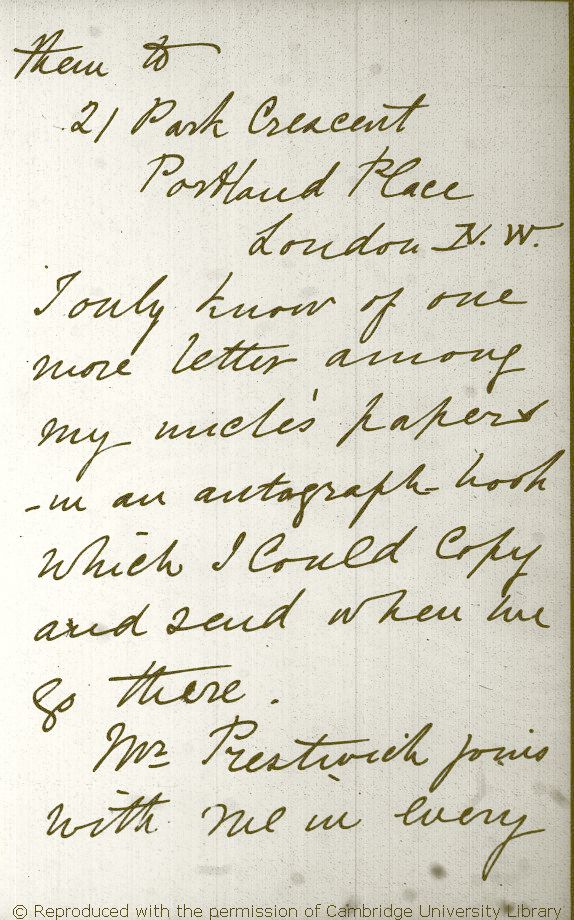 them to
21 Park Crescent
Portland Place
London N. W.
I only know of one
more letter among
my uncle's papers
- in an autograph - book
which I could copy
and send when we
go there.
Mr Prestwich joins
with me in every
© Reproduced with the permission of Cambridge University Library